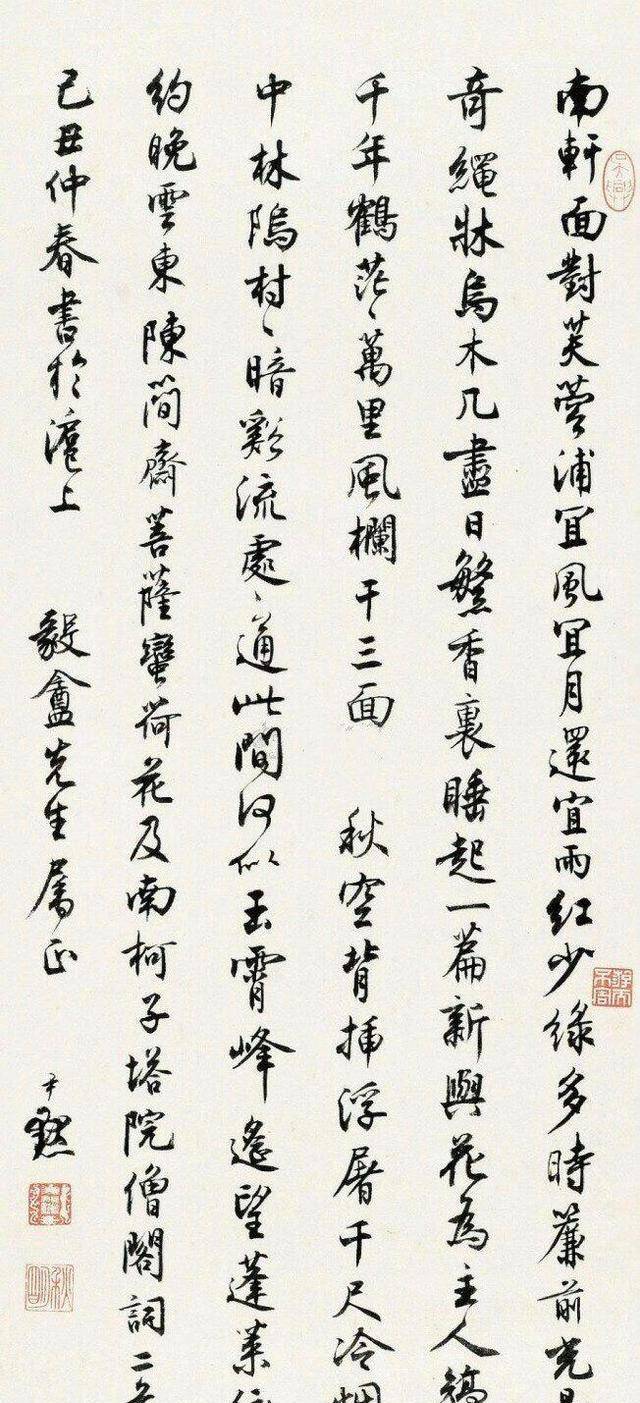 南軒面對芙蓉浦宜風宜月還宜雨紅少綠多時簾前光
奇繩牀烏木几盡日繁香裏睡起一篇新與花為主人
千年鶴茫〻萬里風欄干三面 秋空背插浮屠千尺冷烟
中林隖村〻暗谿流處〻通此間何似玉霄峰遙望蓬萊依
約晚雲東陳簡齋菩薩蠻荷花及南柯子塔院僧閣詞二
己丑仲春書於滬上 毅盦先生屬正 尹默
秋明